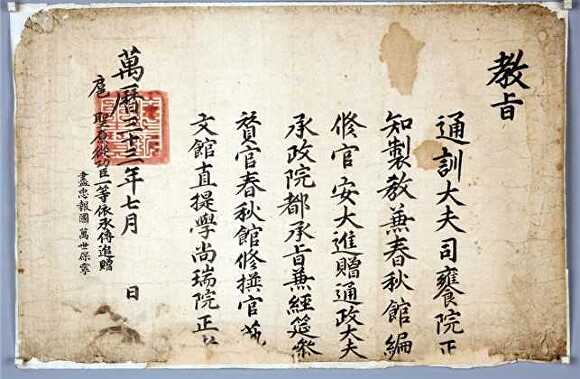 教旨
通訓大夫司饔院正
知製敎兼春秋館編
修官安大進贈通政大夫
承政院都承旨兼經筵參
贊官春秋館修撰官藝
文館直提學尚瑞院正
萬曆三十三年七月 日
扈聖原從功臣一等依承傳追贈
盡忠報國萬世保